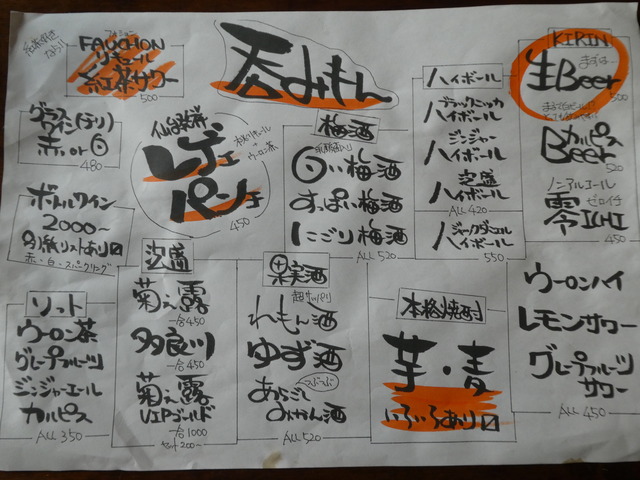 紅茶好き
なら!!
FAUCHON
リモール
紅茶サワー
500
呑みもん
KIRIN
まずは
生Beer
500
カルピス
Beer
520
ノンアルエール
ゼロ付
零ICHI
450
ハイボール
ブラックニッカ
ハイボール
ジンジャー
ハイボール
泡盛
ハイボール
ALL 420
ジャックダニエル
ハイボール
550
梅酒
白い梅酒
すっぱい梅酒
にごり梅酒
ALL 520
レゲエ
パンチ
ウーロン茶
450
グラス
ワイン(デリ)
赤 or 白
480
ボトルワイン
2000~
別紙リストあり
赤・白・スパークリング
ソフト
ウーロン茶
グレープフルーツ
ジンジャーエール
カルピス
ALL 350
泡盛
菊之露
一合450
多良川
一合450
菊之露
VIPゴールド
一合1000
セット200
果実酒
超サッパリ
れもん酒
ゆず酒
つぶつぶ
あらごし
みかん酒
ALL 520
本格焼酎
芋・麦
いろいろあり
ウーロンハイ
レモンサワー
グレープフルーツ
サワー
ALL 450